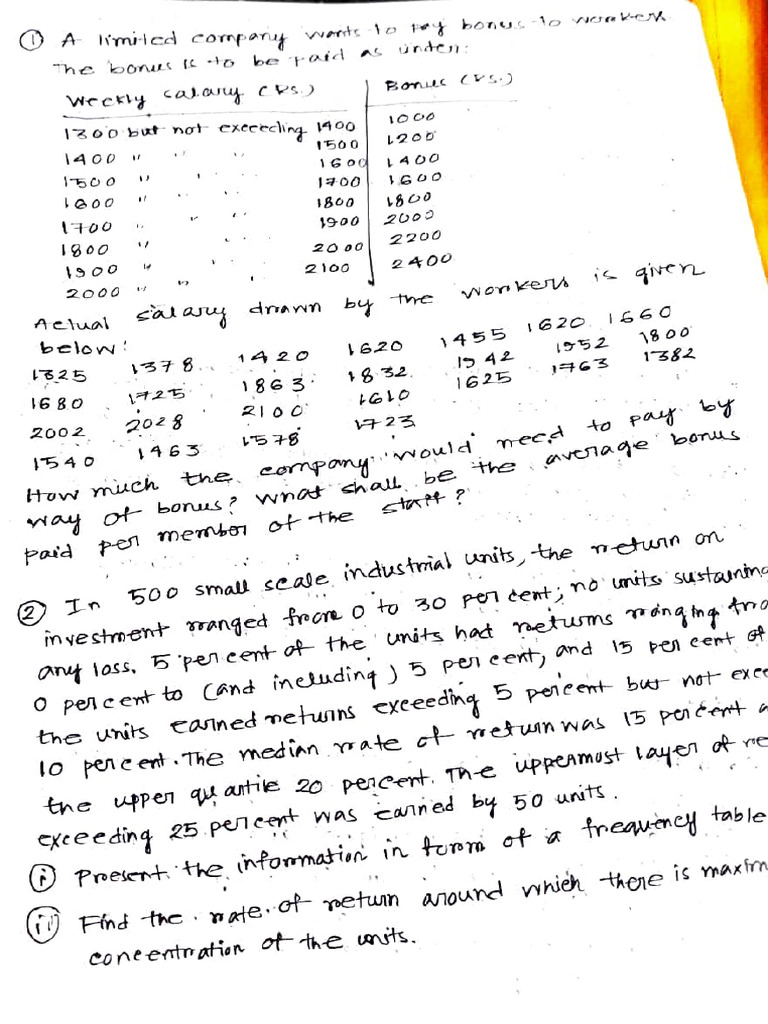 ① A limited company wants to pay bonus to workers.
The bonus is to be paid as under:
Weekly salary (Rs.) Bonus (Rs.)
1300 but not exceeding 1400 1000
1400 " " " 1500 1200
1500 " " " 1600 1400
1600 " " " 1700 1600
1700 " " " 1800 1800
1800 " " " 1900 2000
1900 " " " 2000 2200
2000 " " " 2100 2400
Actual salary drawn by the workers is given
below:
1325 1378 1420 1620 1455 1620 1660
1680 1725 1863 1832 1942 1952 1800
2002 2028 2100 1610 1625 1763 1382
1540 1463 1578 1723
How much the company would need to pay by
way of bonus? What shall be the average bonus
paid per member of the staff?
② In 500 small scale industrial units, the return on
investment ranged from 0 to 30 per cent; no units sustaining
any loss. 5 per cent of the units had returns ranging
0 percent to (and including) 5 per cent, and 15 per cent of
the units earned returns exceeding 5 percent but not
10 per cent. The median rate of return was 15 percent
the upper quartile 20 percent. The uppermost layer of
exceeding 25 percent was earned by 50 units.
ⓘ Present the information in form of a frequency table
ⓘⓘ Find the rate of return around which there is
concentration of the units.